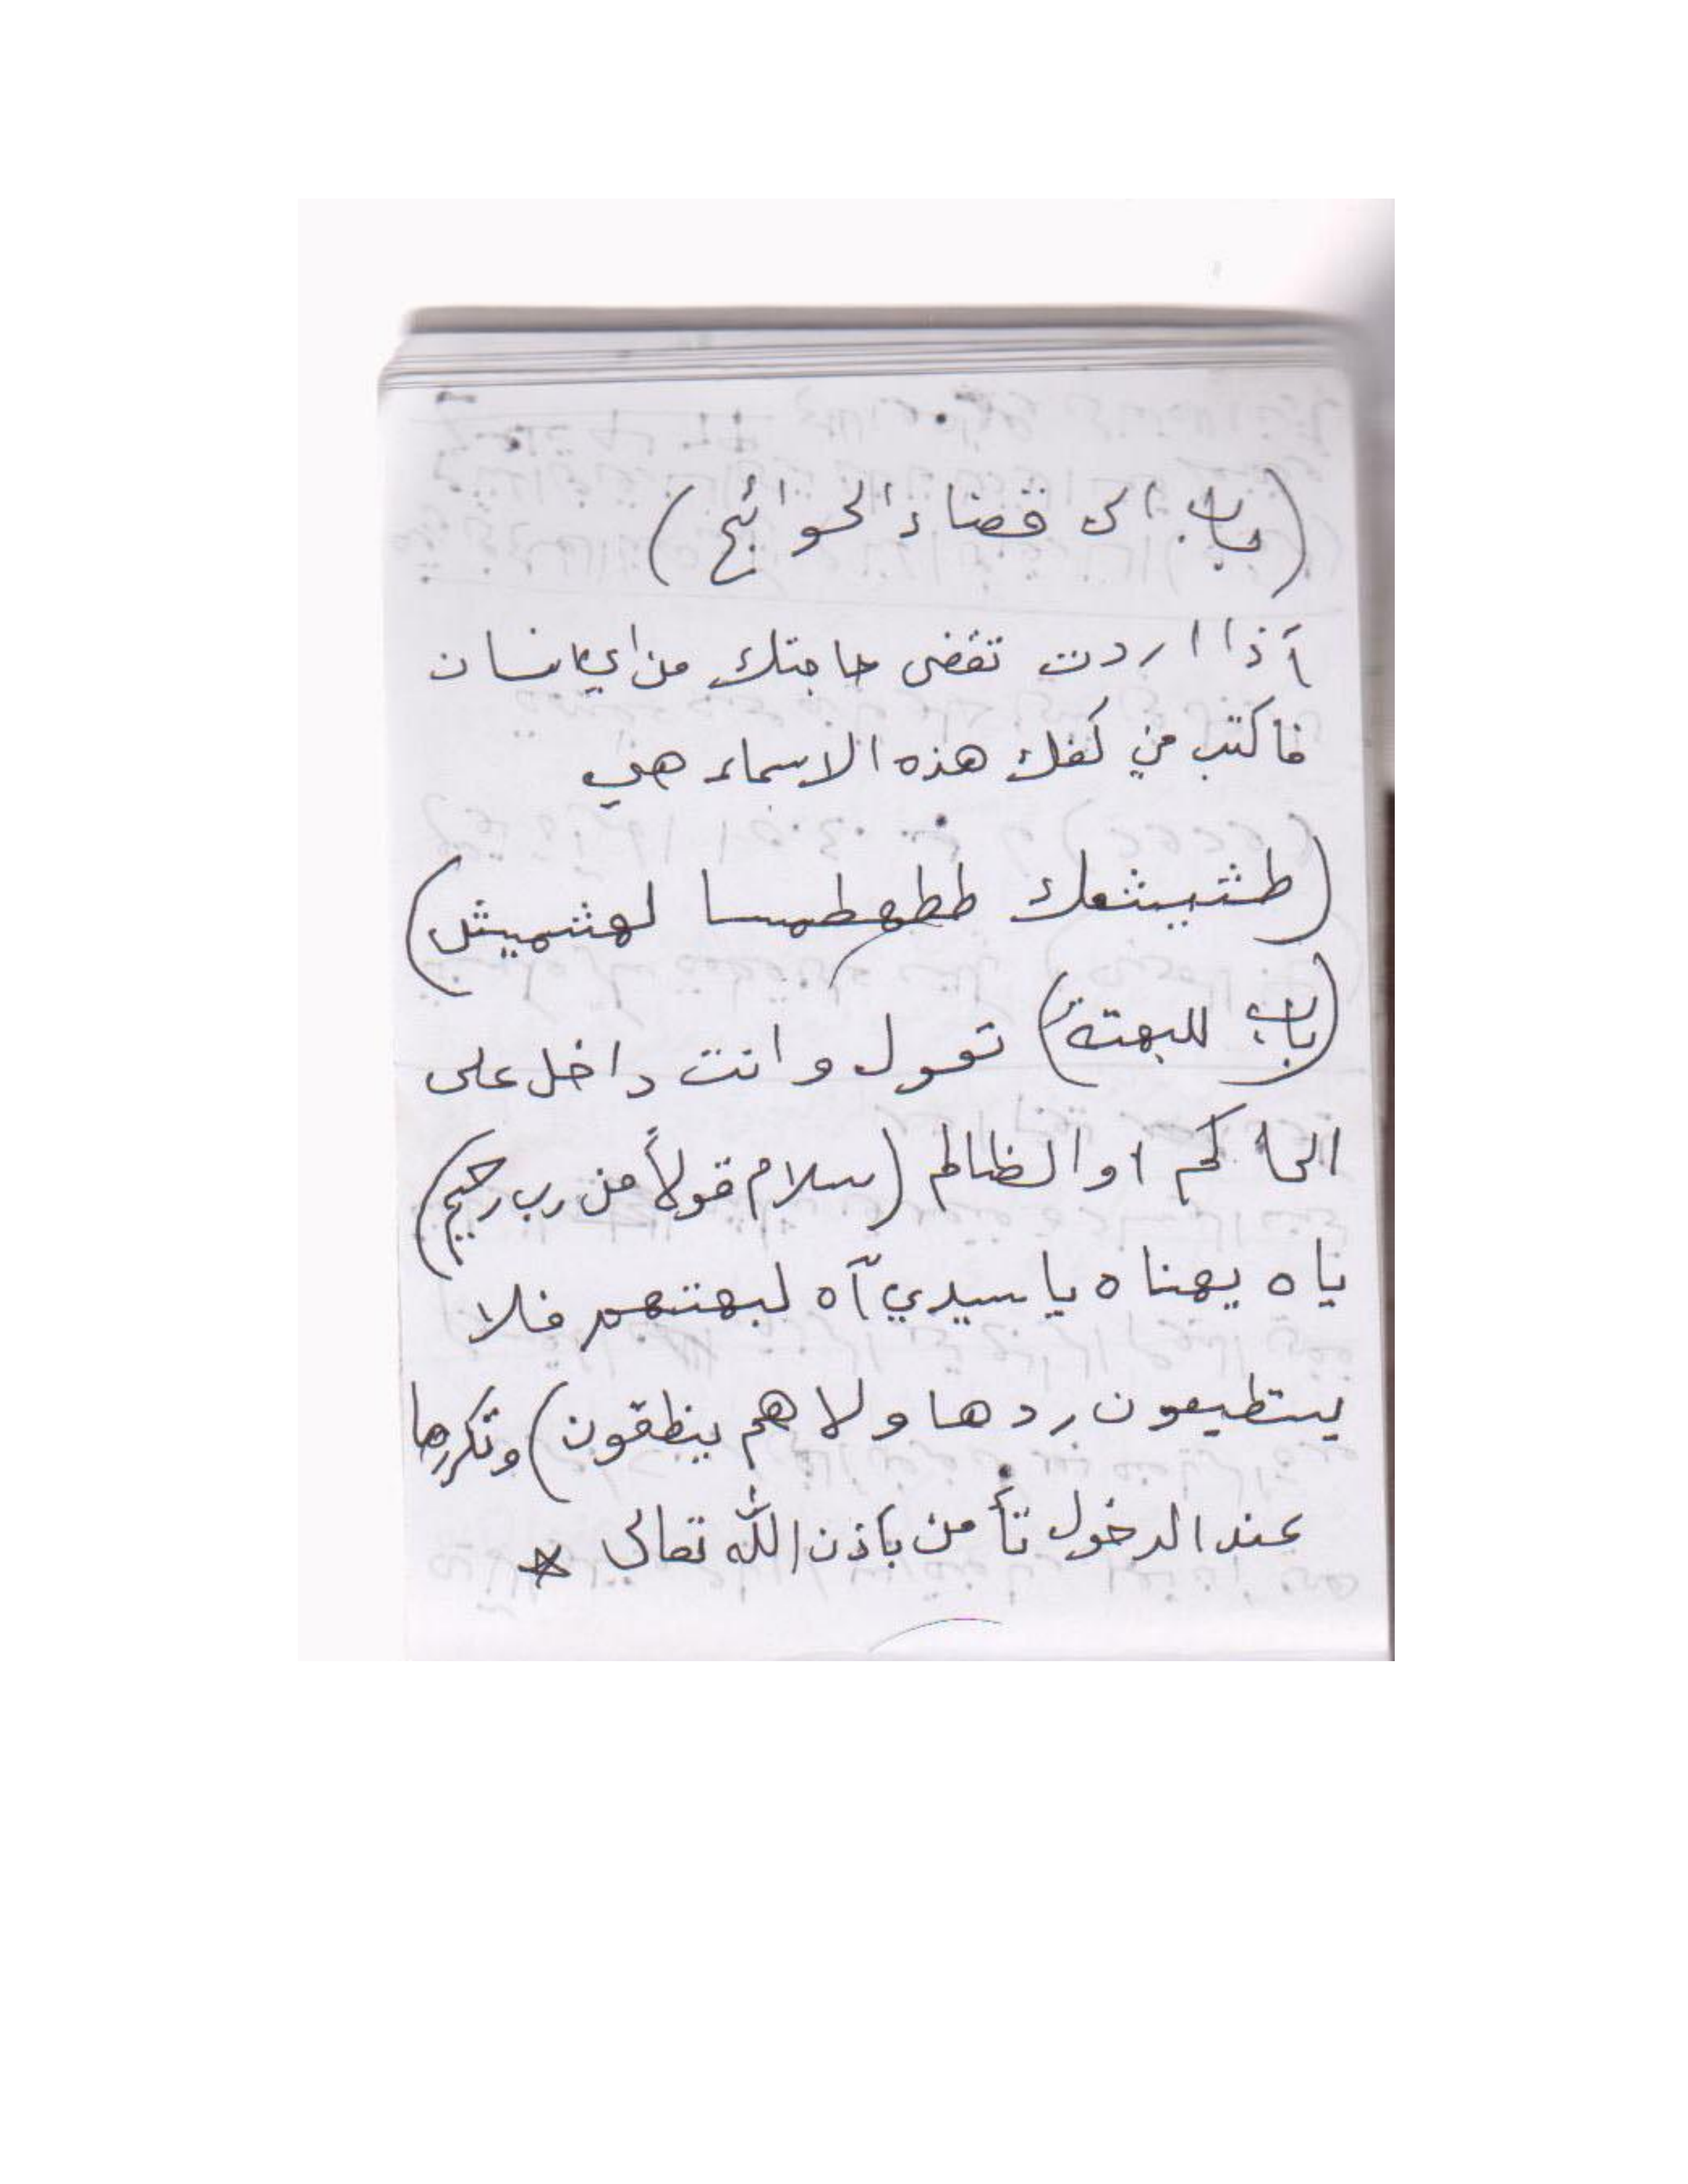 (باب الى قضاء الحوائج)
آذا اردت تقضى حاجتك من اي انسان
فاكتب في كفك هذه الاسماء هي
(طشيشعك ططهطمسا لهشميش)
(باب للبهتة) تقول وانت داخل على
الحاكم او الظالم (سلام قولاً من رب رحيم)
ياه يهناه ياسيدي آه لبهتهم فلا
يستطيعون ردها ولا هم ينطقون) وتكررها
عند الدخول تأمن بأذن الله تعالى *